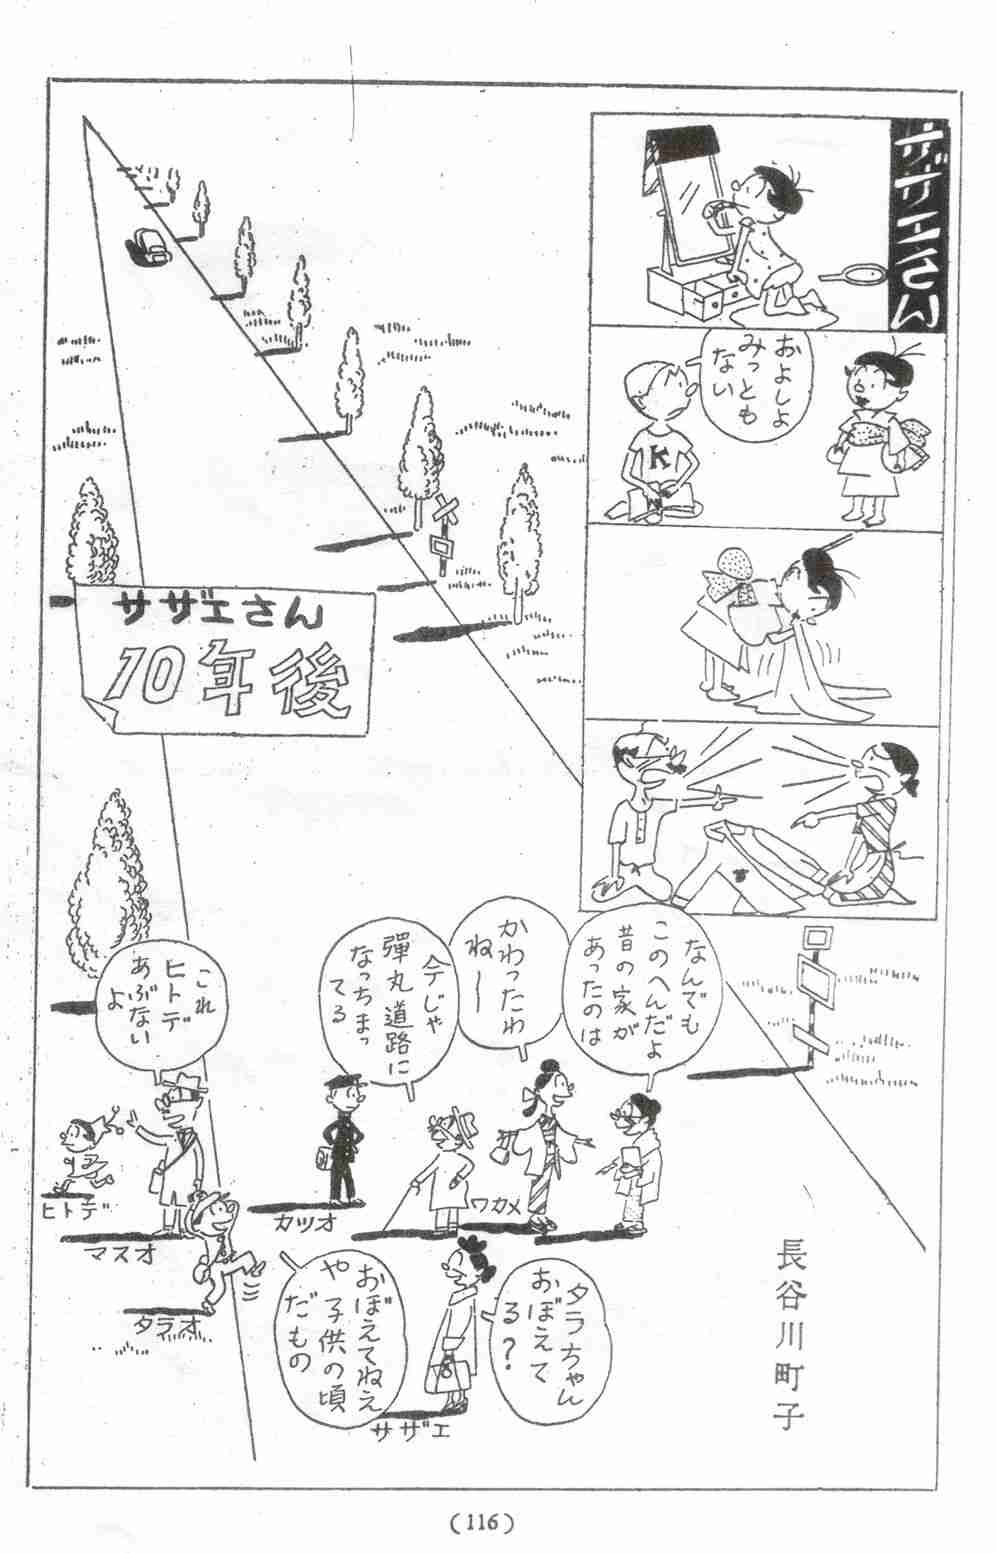 サザエさん
およしよ
みっとも
ない
K
サザエさん
10年後
なんでも
このへんだよ
昔の家が
あったのは
かわったわ
ねー
今じゃ
彈丸道路に
なっちまっ
てる
これ
ヒトデ
あぶない
よ
ヒトデ
マスオ
タラオ
カツオ
ワカメ
タラちゃん
おぼえて
る?
おぼえてねえ
や 子供の頃
だもの
サザエ
長谷川町子
(116)